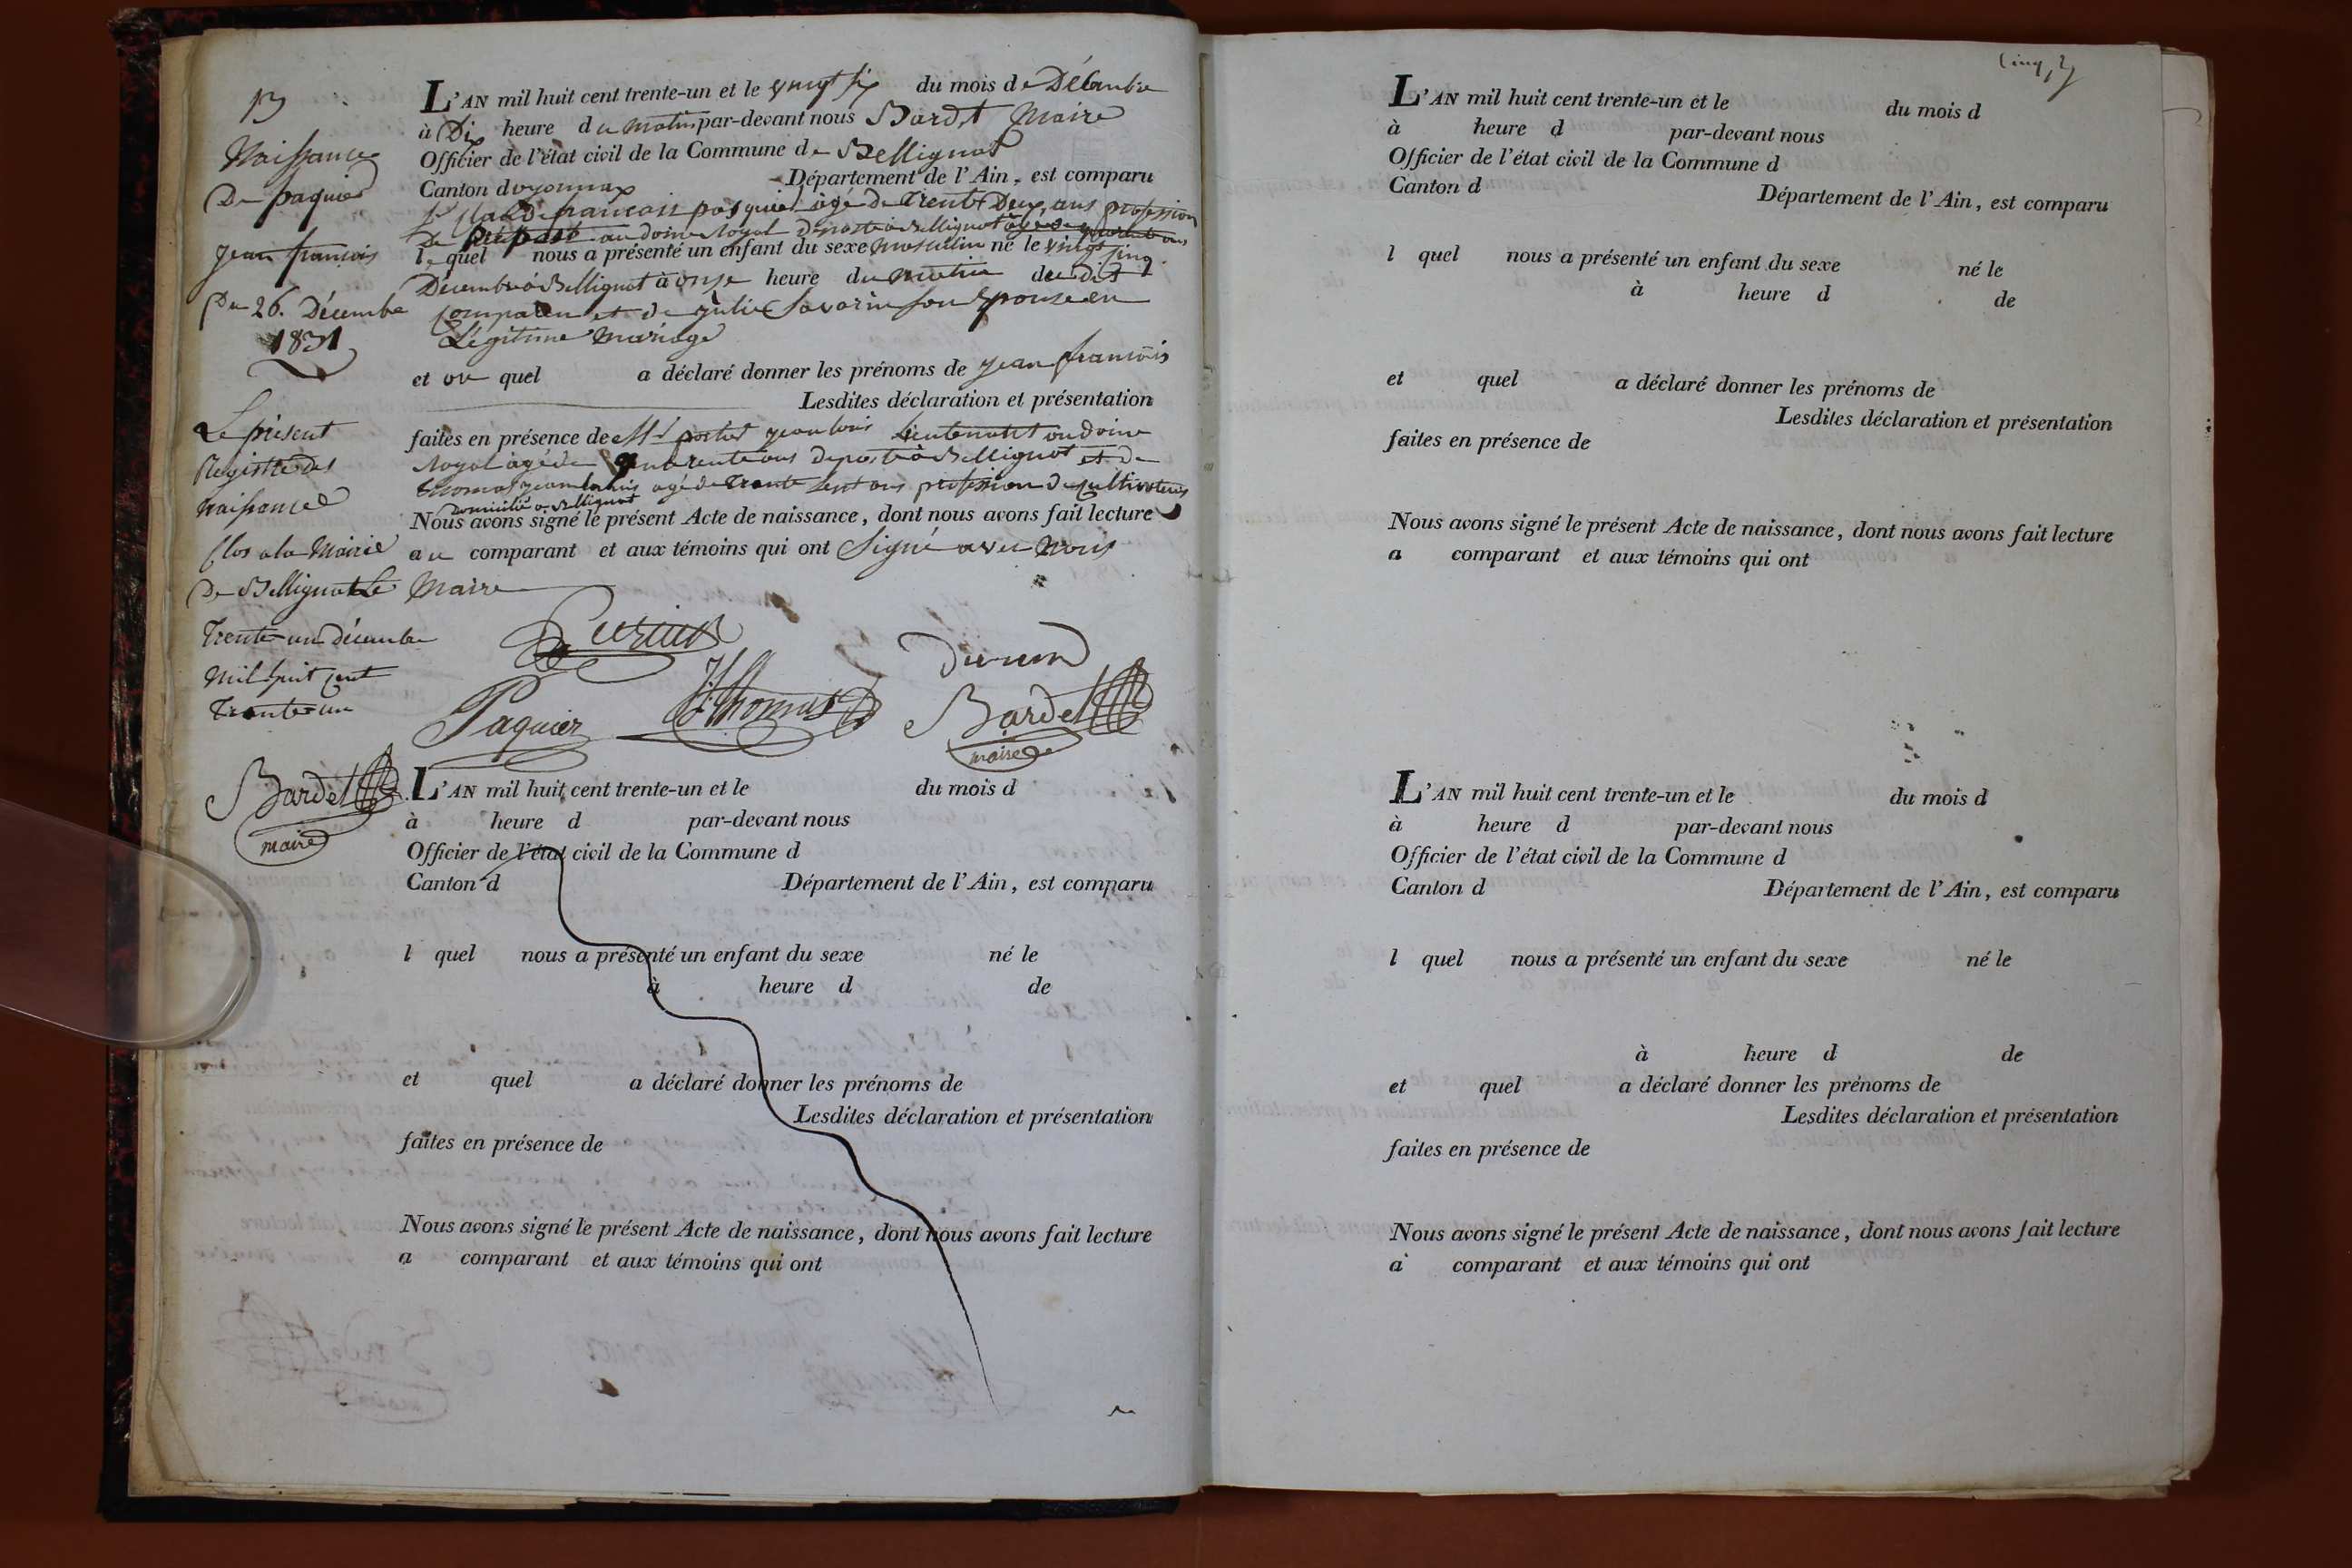 13
Naissance
De paquier
jean francois
Du 26. Décembre
1831
L'AN mil huit cent trente-un et le vingt six du mois de Décembre
à Dix heure du matin par-devant nous Bardet Maire
Officier de l'état civil de la Commune de Bellignat
Canton doyonnax Département de l'Ain, est comparu
francois pasquier âgé de trente Deux ans profession
De préposé au doine Royal déposté a Bellignat
lequel nous a présenté un enfant du sexe masculin né le vingt cinq
Décembre à Bellignat à onze heure du matin du dit
comparu et de julie Savarin son Epouse en
Légitime mariage
et au quel a déclaré donner les prénoms de jean francois
Lesdites déclaration et présentation
faites en présence de jean louis Lieutenant au doine
Royal âgé de quarente ans deposté à Bellignat et de
thomas agé de trente sept ans profession de cultivateur
Domicilié a Bellignat
Nous avons signé le présent Acte de naissance, dont nous avons fait lecture
au comparant et aux témoins qui ont Signé avec Nous
Maire
Le présent
Registre des
naissance
Clos a la Mairie
De Bellignat Le
Trente un décembre
Mil huit cent
Trente un
Paquier
J. Thomas
Bardet
maire
Bardet
maire
L'AN mil huit cent trente-un et le du mois d
à heure d par-devant nous
Officier de l'état civil de la Commune d
Canton d Département de l'Ain, est comparu
l quel nous a présenté un enfant du sexe né le
à heure d de
et quel a déclaré donner les prénoms de
Lesdites déclaration et présentation
faites en présence de
Nous avons signé le présent Acte de naissance, dont nous avons fait lecture
a comparant et aux témoins qui ont
L'AN mil huit cent trente-un et le du mois d
à heure d par-devant nous
Officier de l'état civil de la Commune d
Canton d Département de l'Ain, est comparu
l quel nous a présenté un enfant du sexe né le
à heure d de
et quel a déclaré donner les prénoms de
Lesdites déclaration et présentation
faites en présence de
Nous avons signé le présent Acte de naissance, dont nous avons fait lecture
a comparant et aux témoins qui ont
L'AN mil huit cent trente-un et le du mois d
à heure d par-devant nous
Officier de l'état civil de la Commune d
Canton d Département de l'Ain, est comparu
l quel nous a présenté un enfant du sexe né le
à heure d de
et quel a déclaré donner les prénoms de
Lesdites déclaration et présentation
faites en présence de
Nous avons signé le présent Acte de naissance, dont nous avons fait lecture
a comparant et aux témoins qui ont